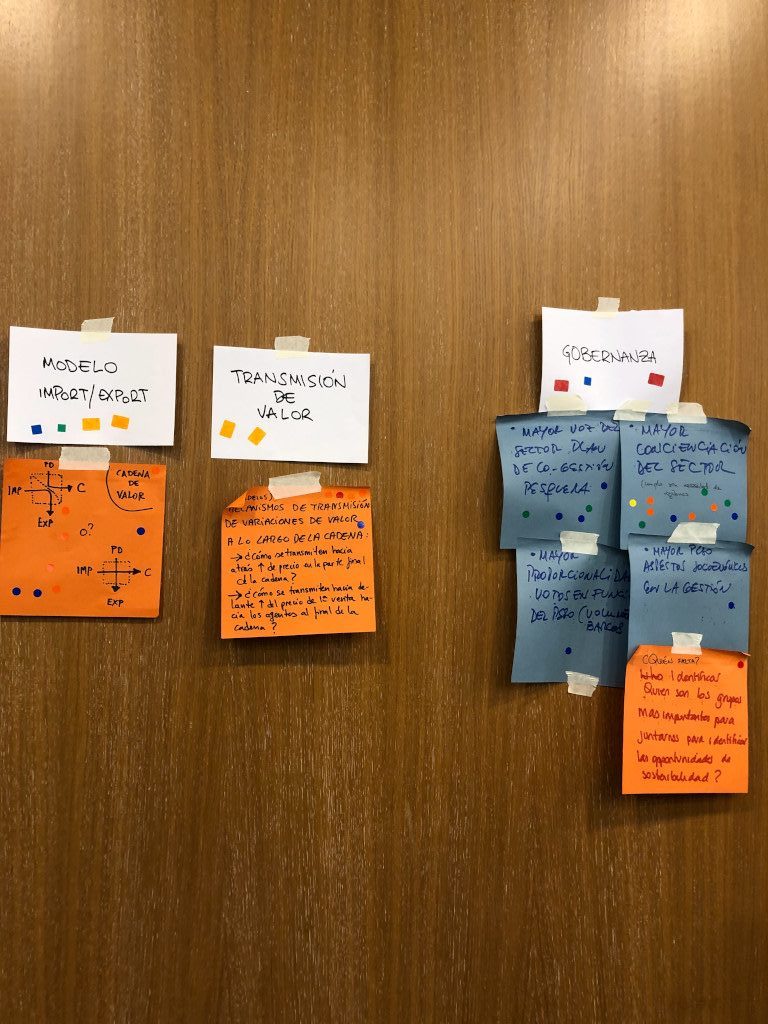 MODELO
IMPORT/EXPORT
PD
IMP
C
EXP
CADENA
DE
VALOR
o?
PD
IMP
C
EXP
TRANSMISIÓN
DE
VALOR
MECANISMOS DE TRANSMISIÓN
DE VARIACIONES DE VALOR
A LO LARGO DE LA CADENA:
→ ¿Cómo se transmiten hacia
atrás ↑ de precio en la parte final
de la cadena?
→ ¿Cómo se transmiten hacia de-
lante ↑ del precio de 1ª venta ha-
cia los agentes al final de la
cadena?
GOBERNANZA
• MAYOR VOZ DEL
SECTOR
DE CO-GESTIÓN
PESQUERA
• MAYOR
CONCIENCIACIÓN
DEL SECTOR
• MAYOR
PROPORCIONALIDAD
VOTOS EN FUNC
DEL PESO (VOLUMEN
BARCOS
• MAYOR PESO
ASPECTOS SOCIOECONÓMICOS
EN LA GESTIÓN
¿QUIÉN FALTA?
Identificar
Quien son los grupos
mas importantes para
juntarnos para identificar
las opportunidades de
sostenibilidad?